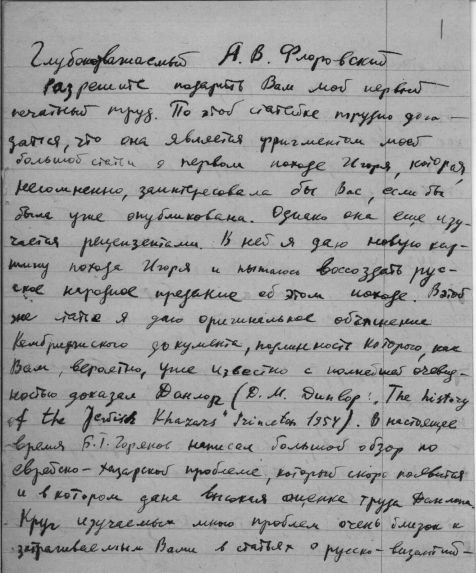 1
Глубокоуважаемый А. В. Флоровский
Разрешите подарить Вам мой первый
печатный труд. По этой статейке трудно дога-
даться, что она является фрагментом моей
большой статьи о первом походе Игоря, которая,
несомненно, заинтересовала бы Вас, если бы
была уже опубликована. Однако она еще изу-
чается рецензентами. В ней я даю новую кар-
тину похода Игоря и пытаюсь воссоздать рус-
ское народное предание об этом походе. В этой
же статье я даю оригинальное объяснение
Кембриджского документа, подлинность которого, как
Вам, вероятно, уже известно с полнейшей очевид-
ностью доказал Данлоп (D. M. Dunlop: „The history
of the Jewish Khazars" Princeton 1954). В настоящее
время Б. Т. Горянов написал большой обзор по
еврейско-хазарской проблеме, который скоро появится
и в котором дана высокая оценка труда Данлопа.
Круг изучаемых мною проблем очень близок к
затрагиваемым Вами в статьях о русско-византий-